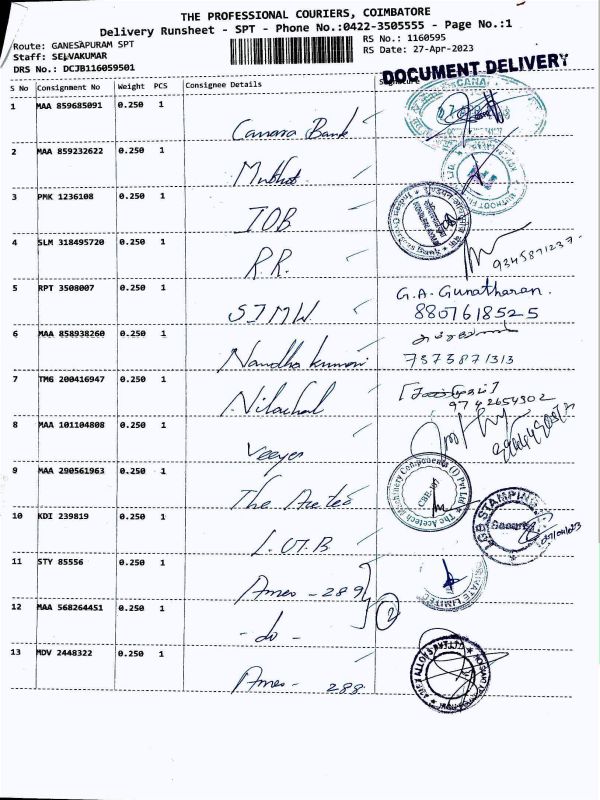 THE PROFESSIONAL COURIERS, COIMBATORE
Delivery Runsheet - SPT - Phone No.:0422-3505555 - Page No.:1
Route: GANESAPURAM SPT
RS No.: 1160595
Staff: SELVAKUMAR
RS Date: 27-Apr-2023
DRS No.: DCJB116059501
DOCUMENT DELIVERY
S No Consignment No Weight PCS Consignee Details Signature
1 MAA 859685091 0.250 1 Canara Bank
2 MAA 859232622 0.250 1 Muthot
3 PMK 1236108 0.250 1 IOB
4 SLM 318495720 0.250 1 R.R. 9345871237
5 RPT 3508007 0.250 1 SIMW G.A. Gunatharan.
8807618525
6 MAA 858938260 0.250 1 Nandha kumari 7373871313
7 TMG 200416947 0.250 1 Nilachal 9742654302
8 MAA 101104808 0.250 1 Veeyes
9 MAA 290561963 0.250 1 The Acetec
The Acetech Machinery Components (I) Pvt Ltd
10 KDI 239819 0.250 1 L.G.B
LGB STAMPING
11 STY 85556 0.250 1 Ames - 289
2
12 MAA 568264451 0.250 1 - do -
13 MDV 2448322 0.250 1 Ames - 288